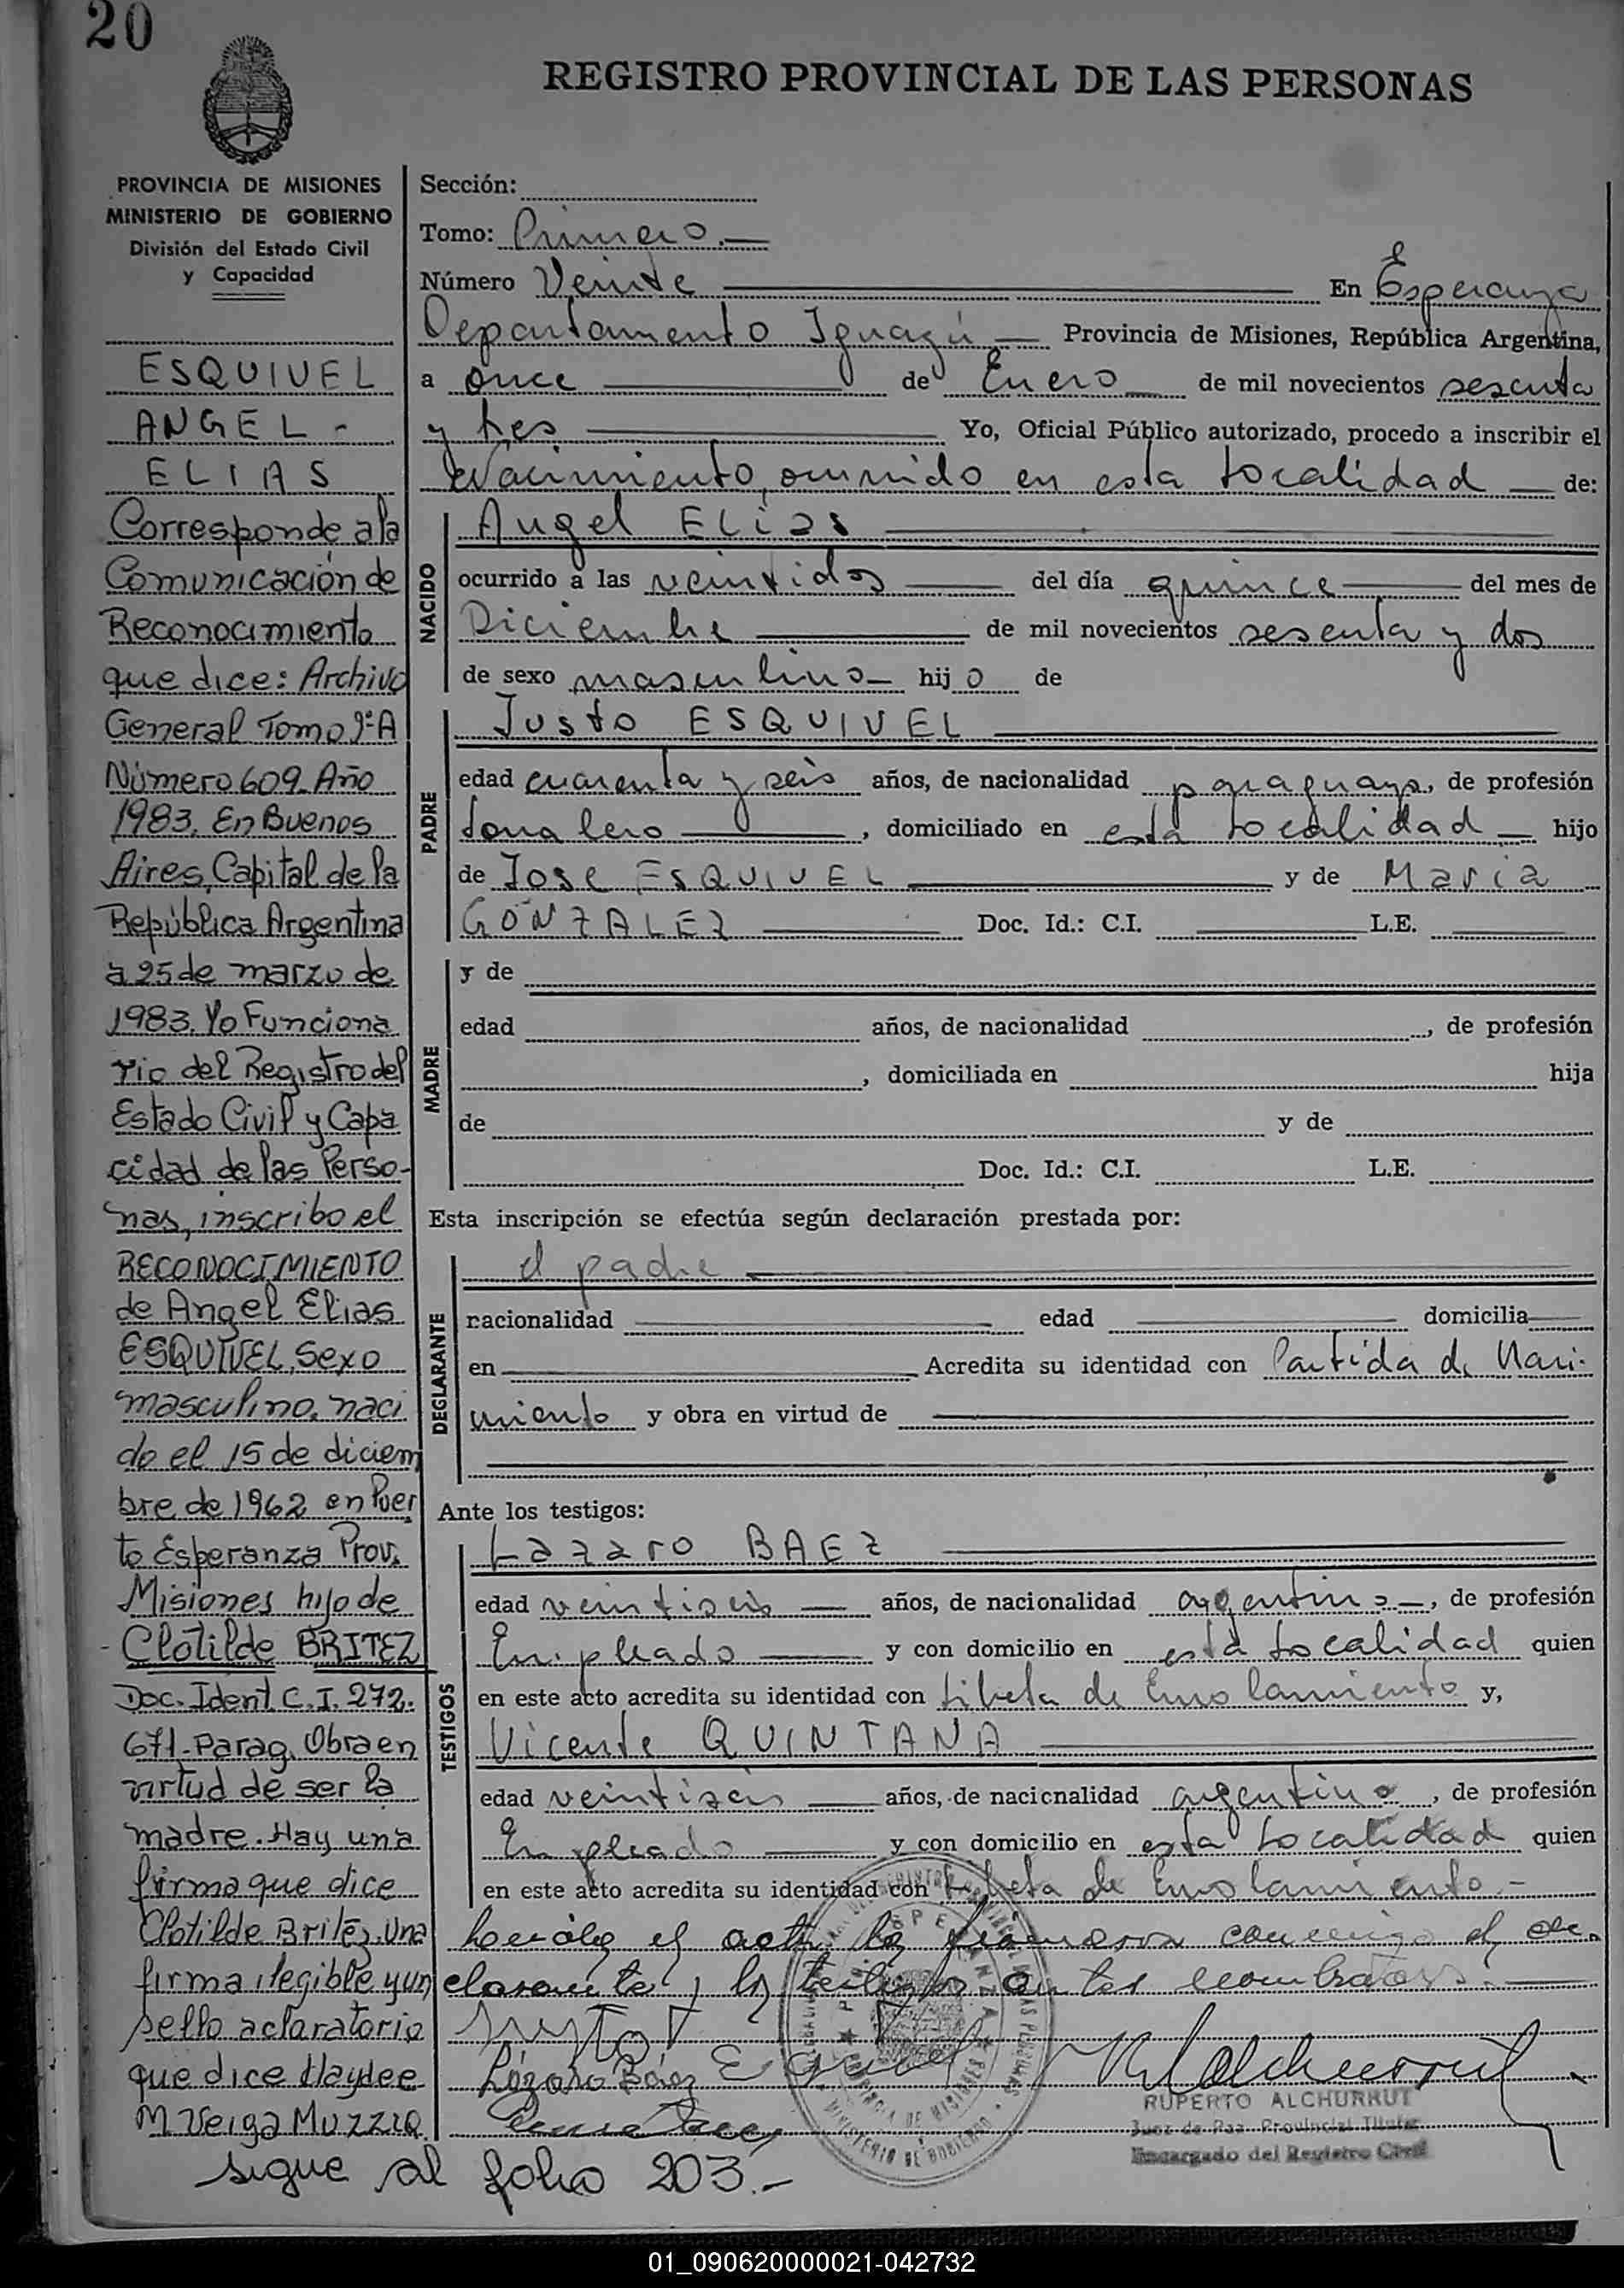 20
REGISTRO PROVINCIAL DE LAS PERSONAS
PROVINCIA DE MISIONES
MINISTERIO DE GOBIERNO
División del Estado Civil
y Capacidad
ESQUIVEL
ANGEL -
ELIAS
Corresponde a la
Comunicación de
Reconocimiento
que dice: Archivo
General Tomo 1º A
Número 609. Año
1983. En Buenos
Aires, Capital de la
República Argentina
a 25 de marzo de
1983. Yo Funciona
rio del Registro del
Estado Civil y Capa
cidad de las Perso-
nas, inscribo el
RECONOCIMIENTO
de Angel Elias
ESQUIVEL, Sexo
masculino, naci
do el 15 de diciem
bre de 1962 en Puer
to Esperanza Prov.
Misiones hijo de
- Clotilde BRITEZ
Doc. Ident. C.I. 272.
671-Parag. Obra en
virtud de ser la
madre. Hay una
firma que dice
Clotilde Britez. Una
firma ilegible y un
sello aclaratorio
que dice Haydee
M Veiga Muzzio
sigue al folio 203.-
Sección:
Tomo: Primero.—
Número Veinte — En Esperanza
Departamento Iguazú — Provincia de Misiones, República Argentina,
a once — de Enero — de mil novecientos sesenta
y tres — Yo, Oficial Público autorizado, procedo a inscribir el
Nacimiento, ocurrido en esta localidad — de:
NACIDO
Angel ELias —
ocurrido a las veintidos — del día quince — del mes de
Diciembre — de mil novecientos sesenta y dos
de sexo masculino — hij o de
PADRE
Justo ESQUIVEL —
edad cuarenta y seis años, de nacionalidad paraguaya, de profesión
Jornalero —, domiciliado en esta localidad — hijo
de Jose ESQUIVEL — y de Maria
GONZALEZ — Doc. Id.: C.I. — L.E. —
MADRE
y de
edad años, de nacionalidad , de profesión
, domiciliada en hija
de y de
Doc. Id.: C.I. L.E.
Esta inscripción se efectúa según declaración prestada por:
DEGLARANTE
el padre —
nacionalidad — edad — domicilia—
en — Acredita su identidad con Partida de Naci-
miento y obra en virtud de —
Ante los testigos:
TESTIGOS
Lazaro BAEZ —
edad veintiseis — años, de nacionalidad argentino —, de profesión
Empleado — y con domicilio en esta localidad quien
en este acto acredita su identidad con libreta de Enrolamiento y,
Vicente QUINTANA —
edad veintiseis — años, de nacionalidad argentino , de profesión
Empleado — y con domicilio en esta localidad quien
en este acto acredita su identidad con Libreta de Enrolamiento.-
Leída el acta, la firmaron conmigo el de-
clarante y los testigos antes nombrados.—
Justo
Lázaro Báez Esquivel
RUPERTO ALCHURRUT
Juez de Paz Provincial Titular
Encargado del Registro Civil
01_090620000021-042732